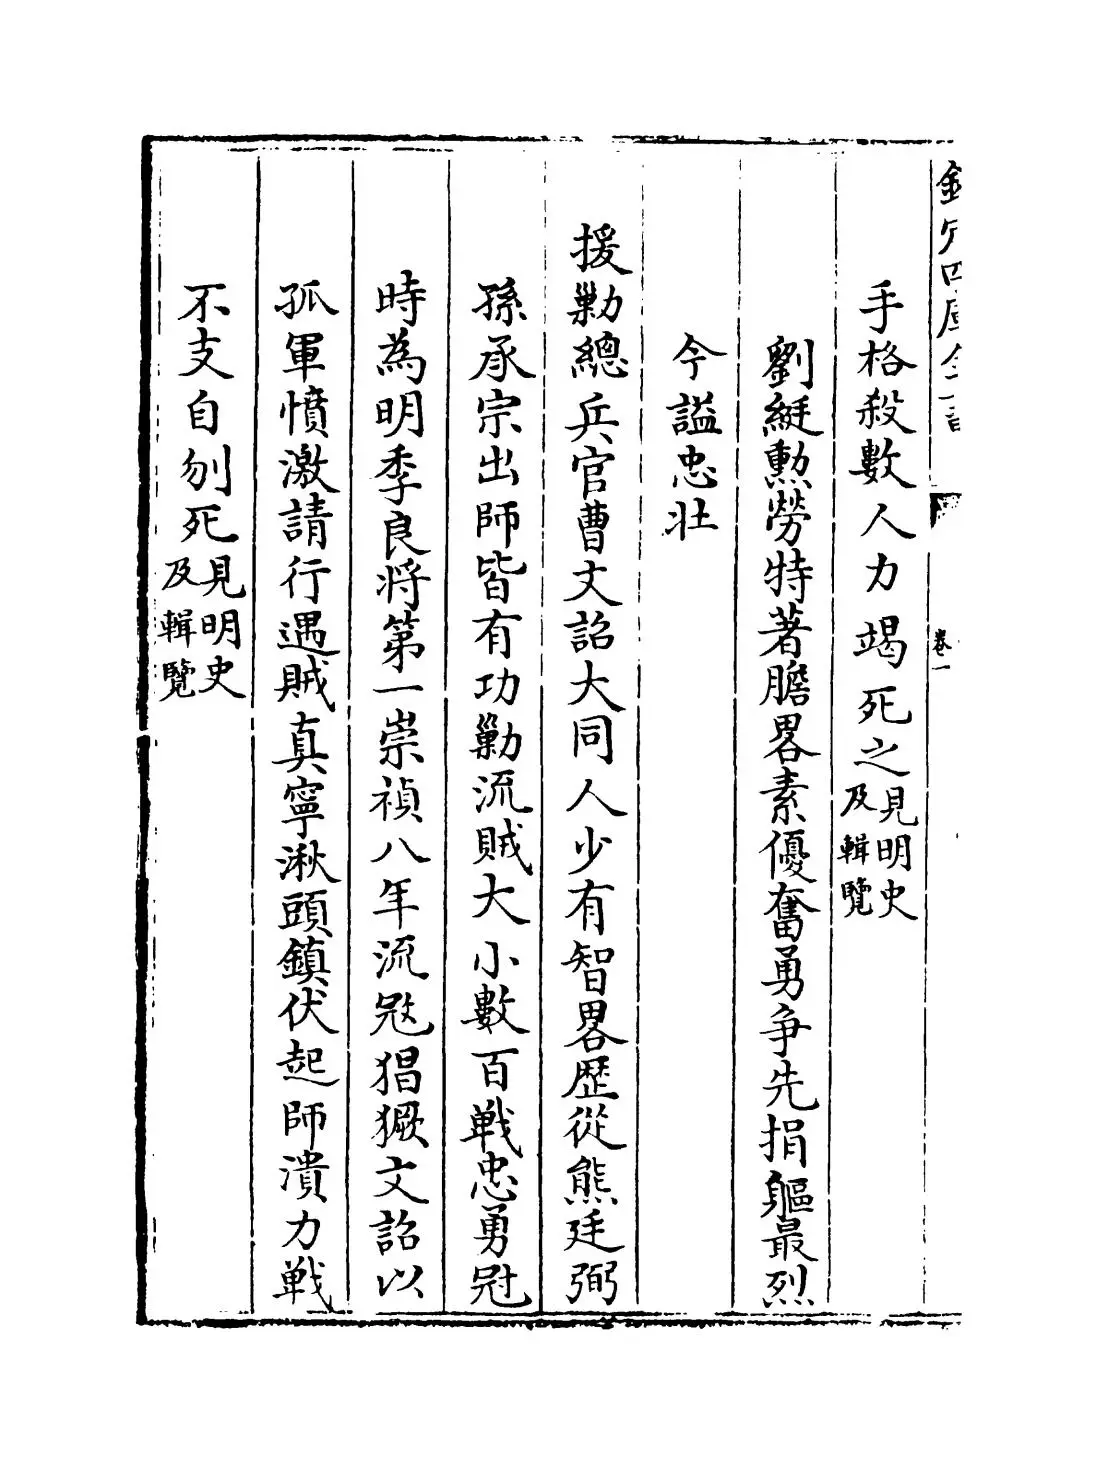 欽定四庫全書
卷一
手格殺數人力竭死之見明史及輯覽
劉綎勲勞特著膽畧素優奮勇爭先捐軀最烈
今諡忠壯
援勦總兵官曹文詔大同人少有智畧歷從熊廷弼
孫承宗出師皆有功勦流賊大小數百戰忠勇冠
時為明季良將第一崇禎八年流冦猖獗文詔以
孤軍憤激請行遇賊真寧湫頭鎮伏起師潰力戰
不支自刎死見明史及輯覽